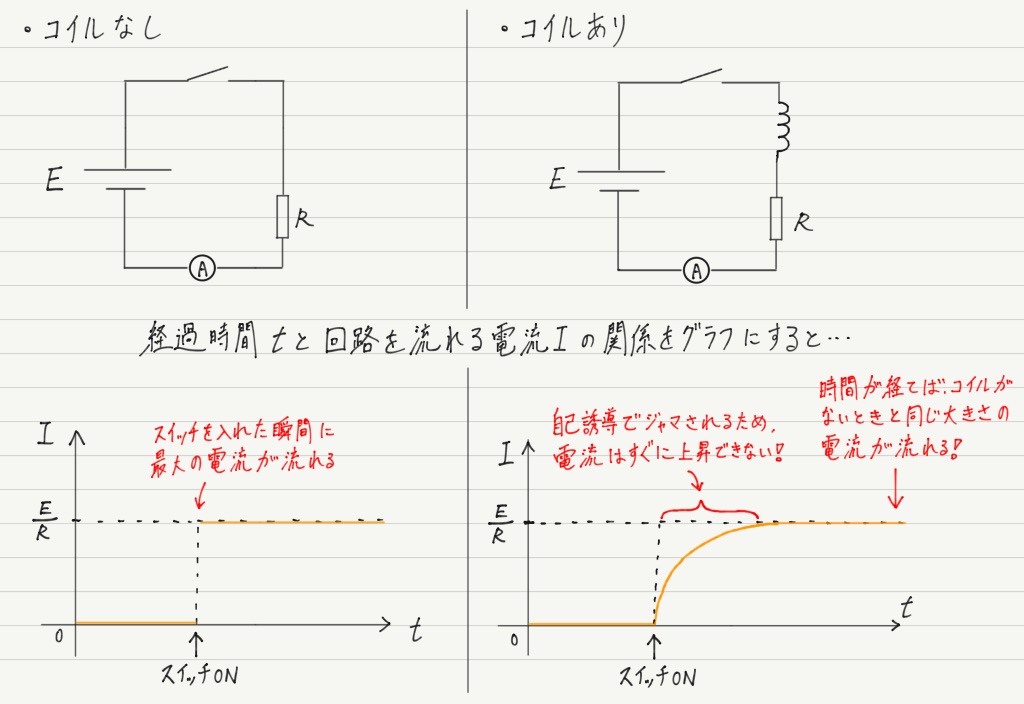 ・コイルなし
E
R
A
・コイルあり
E
R
A
経過時間 tと回路を流れる電流Iの関係をグラフにすると…
スイッチを入れた瞬間に
最大の電流が流れる
I
E/R
0
t
スイッチON
自己誘導でジャマされるため、
電流はすぐに上昇できない!
時間が経てば、コイルが
ないときと同じ大きさの
電流が流れる!
I
E/R
0
t
スイッチON